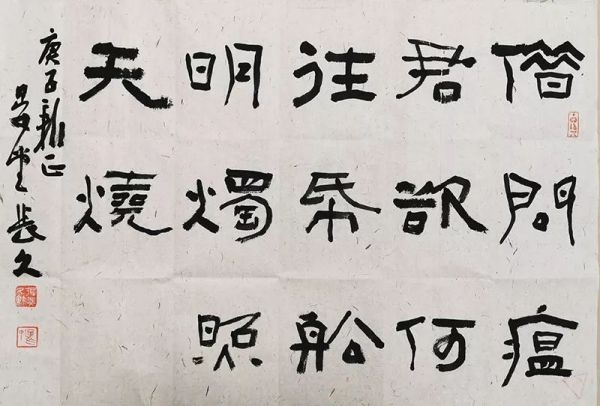 借問瘟
君欲何
往帋舩
明燭照
天燒
庚子新正
堂長久